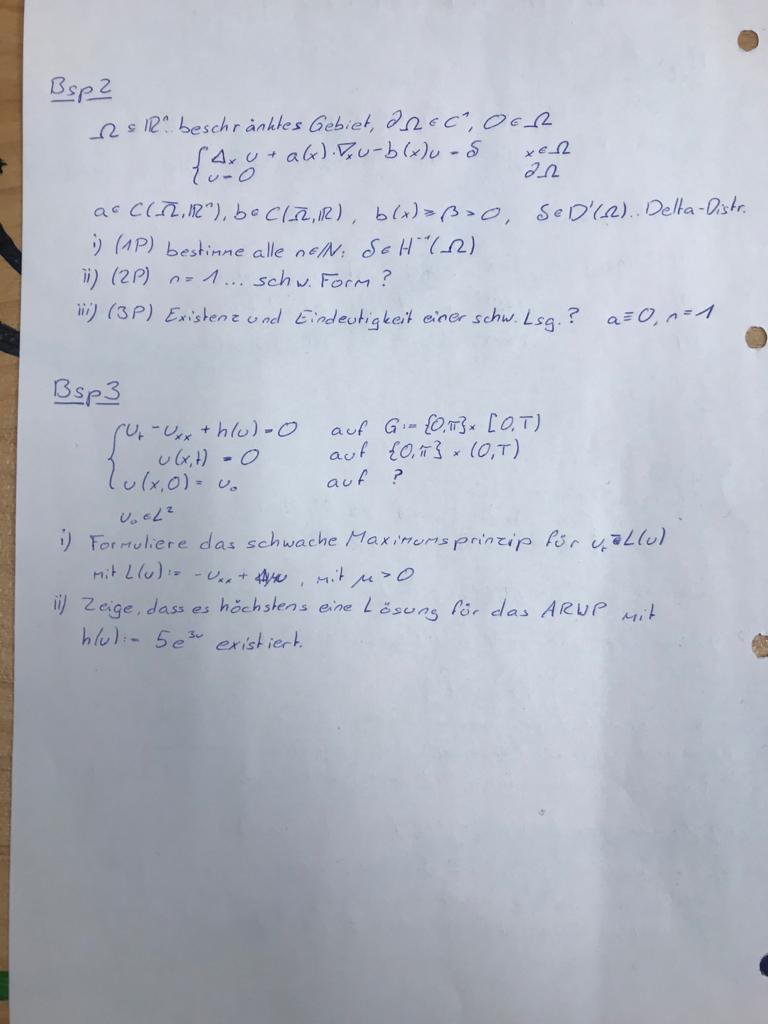 Bsp2
Ω ⊆ ℝⁿ beschränktes Gebiet, ∂Ω ∈ C¹, 0 ∈ Ω
{ Δₓ u + a(x)·∇ₓu - b(x)u = δ x ∈ Ω
u = 0 ∂Ω
a ∈ C(Ω̄, ℝⁿ), b ∈ C(Ω̄, ℝ), b(x) ≥ β > 0, δ ∈ D'(Ω).. Delta-Distr.
i) (1P) bestimme alle n∈ℕ: δ ∈ H⁻¹(Ω)
ii) (2P) n = 1 ... schw. Form?
iii) (3P) Existenz und Eindeutigkeit einer schw. Lsg.? a ≡ 0, n = 1
Bsp3
{ uₜ - uₓₓ + h(u) = 0 auf G := {0,π} × [0,T)
u(x,t) = 0 auf {0,π} × (0,T)
u(x,0) = u₀ auf ?
u₀ ∈ L²
i) Formuliere das schwache Maximumsprinzip für uₜ = L(u)
mit L(u) := -uₓₓ + , mit μ > 0
ii) Zeige, dass es höchstens eine Lösung für das ARWP mit
h(u) := 5e³ᵘ existiert.